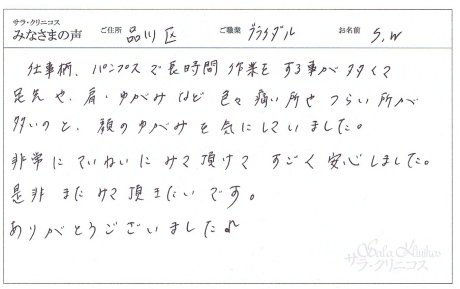 サラ・クリニコス
みなさまの声 ご住所 品川区 ご職業 ブライダル お名前 S.W
仕事柄、パンプスで長時間作業をする事が多くて
足先や、肩・ゆがみなど色々痛い所やつらい所が
多いのと、顔のゆがみを気にしていました。
非常にていねいにみて頂けてすごく安心しました。
是非またみて頂きたいです。
ありがとうございました♪
Sala Klinikos
サラ・クリニコス